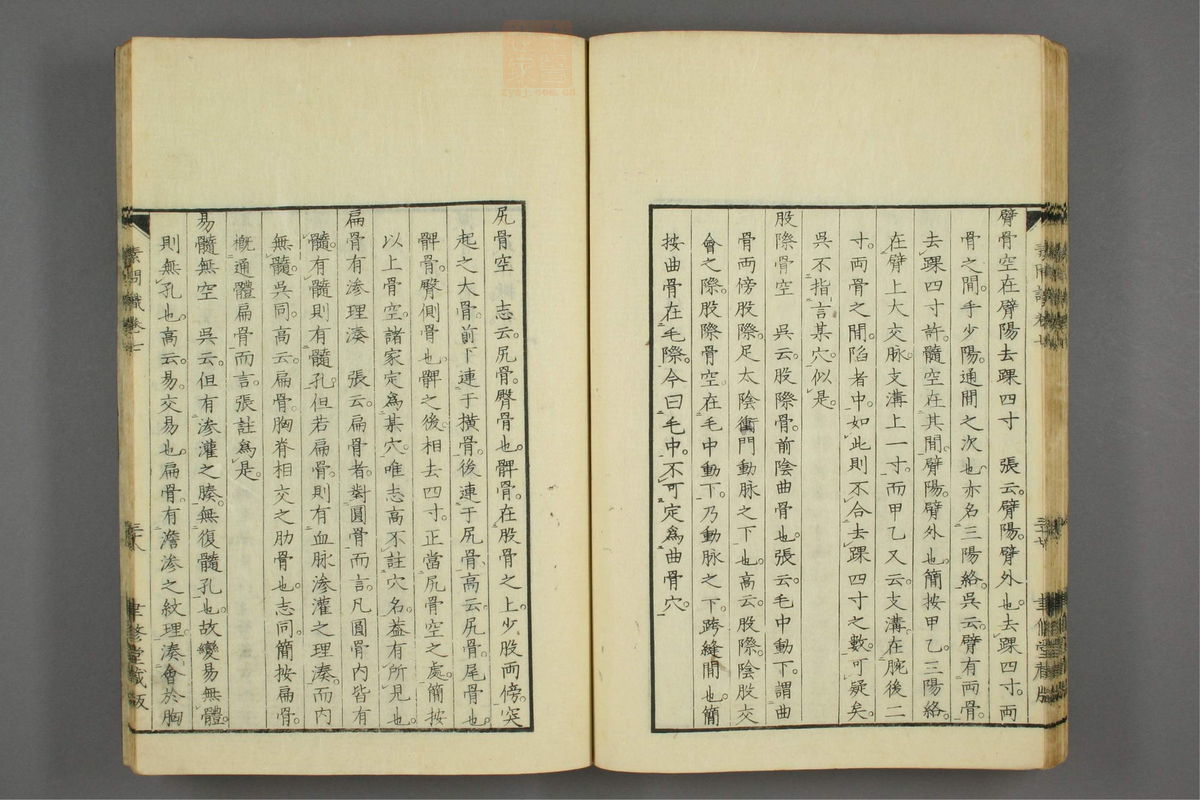 臂骨空在臂陽去踝四寸　張云。臂陽。臂外也。去踝四寸。兩
骨之間。手少陽。通間之次也。亦名三陽絡。吳云。臂有兩骨。
去踝四寸許。髓空在其間。臂陽。臂外也。簡按甲乙。三陽絡。
在臂上大交脉。支溝上一寸。而甲乙又云。支溝。在腕後二
寸。兩骨之間。陷者中。如此則不合去踝四寸之數。可疑矣。
吳不指言某穴。似是。
股際骨空　吳云。股際骨。前陰曲骨也。張云。毛中動下。謂曲
骨兩傍股際。足太陰衝門動脉之下也。高云。股際。陰股交
會之際。股際骨空。在毛中動下。乃動脉之下。跨縫間也。簡
按曲骨在毛際。今曰毛中。不可定爲曲骨穴。
尻骨空　志云。尻骨。臀骨也。髀骨。在股骨之上。少股兩傍。突
起之大骨。前下連于橫骨。後連于尻骨。高云。尻骨。尾骨也。
髀骨。臀側骨也。髀之後。相去四寸。正當尻骨空之處。簡按
以上骨空。諸家定爲某穴。唯志高不註穴名。葢有所見也。
扁骨有滲理湊　張云。扁骨者。對圓骨而言。凡圓骨內皆有
髓。有髓則有髓孔。但若扁骨。則有血脉滲灌之理湊。而內
無髓。吳同。高云。扁骨。胸脊相交之肋骨也。志同。簡按扁骨。
槪通體扁骨而言。張註爲是。
易髓無空　吳云。但有滲灌之腠。無復髓孔也。故變易無體。
則無孔也。高云。易。交易也。扁骨有澹滲之紋理。湊會於胸
素問識卷七
三十八
聿修堂藏版